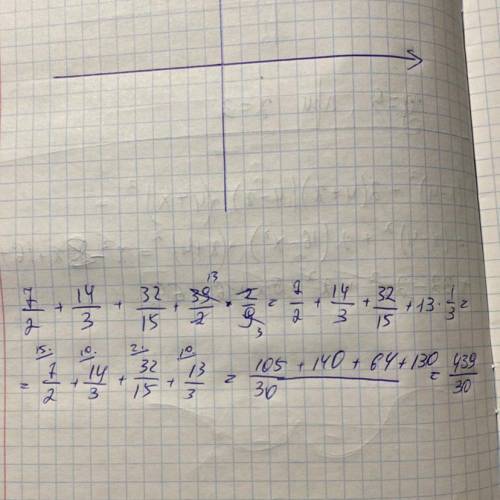 7/2 + 14/3 + 32/15 + 39/2 · 2/9 = 7/2 + 14/3 + 32/15 + 13 · 1/3 =
= 7/2 + 14/3 + 32/15 + 13/3 = 105 + 140 + 64 + 130/30 = 439/30